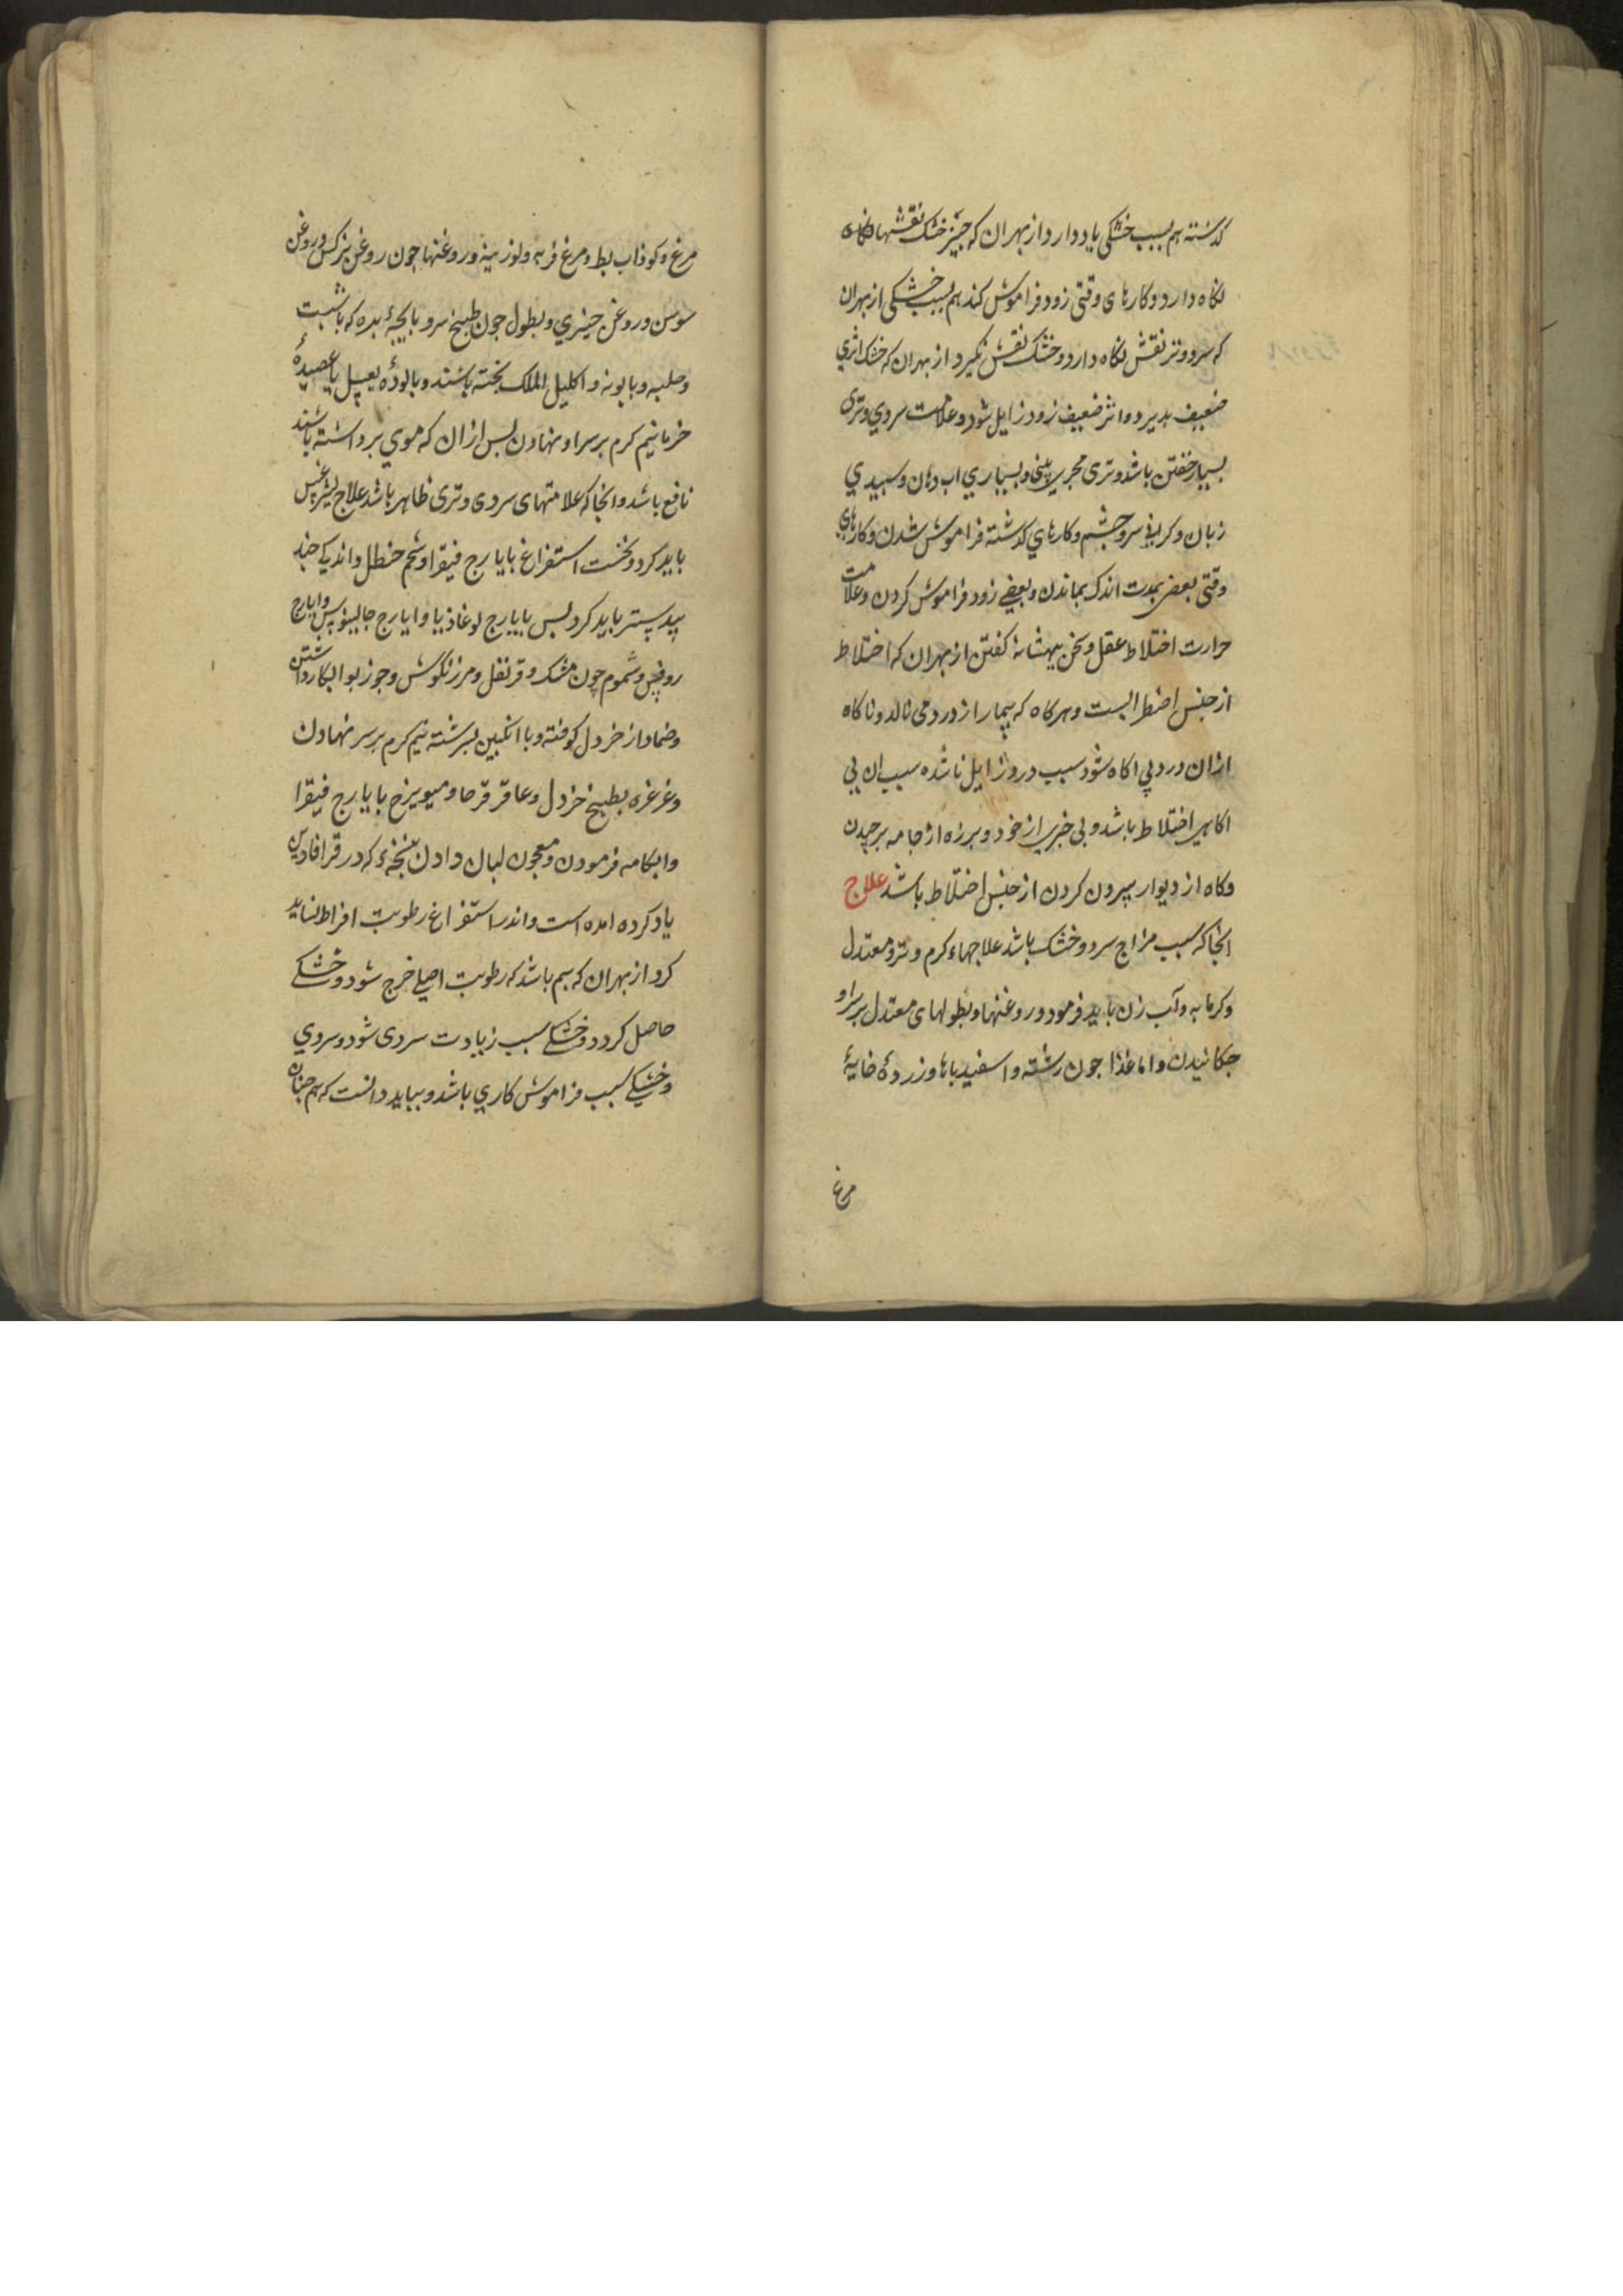 کذشته هم بسبب خشکی یاد دارد از بهران که چیز خشک نقشها
نکاه دارد و کارهای وقتی زود فراموش کند هم بسبب خشکی از بهران
که سرد و تر نقش نکاه دارد و خشک نقش نکیرد از بهران که خشک اثری
ضعیف پذیرد و اثر ضعیف زود زایل شود و علامت سردی و تری
بسیار خفتن باشد و تری مجری بینی و بسیاری اب دهان و سبیدی
زبان و کرانی سر و چشم و کارهای کذشته فراموش شدن و کارهای
وقتی بعضی بمدت اندک بماندن و بعضی زود فراموش کردن و علامت
حرارت اختلاط عقل و سخن بیهشانه کفتن از بهران که اختلاط
از جنس اضطرابست و هرکاه که بیمار از درد می نالد و ناکاه
ازان درد بی اکاه شود سبب درد زایل ناشده سبب ان بی
اکاهی اختلاط باشد و بی خبری از خود و برزه از جامه برچیدن
و کاه از دیوار بیرون کردن از جنس اختلاط باشد علاج
انجا که سبب مزاج سرد و خشک باشد علاجهاء کرم و تر و معتدل
و کرمابه و آب زن باید فرمود و روغنها و نطولهای معتدل بر سر او
چکانیدن و اما غذا جون رشته و اسفیدباها و زرده خایهٔ
مرغ
مرغ و کوذاب بط و مرغ فربه و لوزینه و روغنها جون روغن نرکس و روغن
سوسن و روغن خیری و نطول جون طبیخ سر و باچهٔ بره که با شبت
و حلبه و بابونه و اکلیل الملک بخته باشند و بالودهٔ بعسل یا عصیدهٔ
خرما نیم کرم بر سر او نهادن بس ازان که موی بر داشته باشند
نافع باشد و انجا که علامتهای سردی و تری ظاهر باشد علاج لیثرغس
باید کرد و نخست استفراغ بایارج فیقرا و شحم حنطل و اندکی جند
بیدستر باید کرد بس بایارج لوغاذیا و ایارج جالینوس و ایارج
روفس و شموم چون مشک و قرنفل و مرزنکوش و جوزبوا بکار داشتن
و ضماد از خردل کوفته و با انکبین بسرشته نیم کرم بر سر نهادن
و غرغره بطبیخ خردل و عاقر قرحا و میویزج بایارج فیقرا
و ابکامه فرمودن و معجون لبان دادن بنسخهٔ که در قرافادین
یاد کرده امده است و اندر استفراغ رطوبت افراط نباید
کرد از بهران که بیم باشد که رطوبت اصلی خرج شود و خشکی
حاصل کردد و خشکی سبب زیادت سردی شود و سردی
و خشکی سبب فراموش کاری باشد و بباید دانست که هم جنان